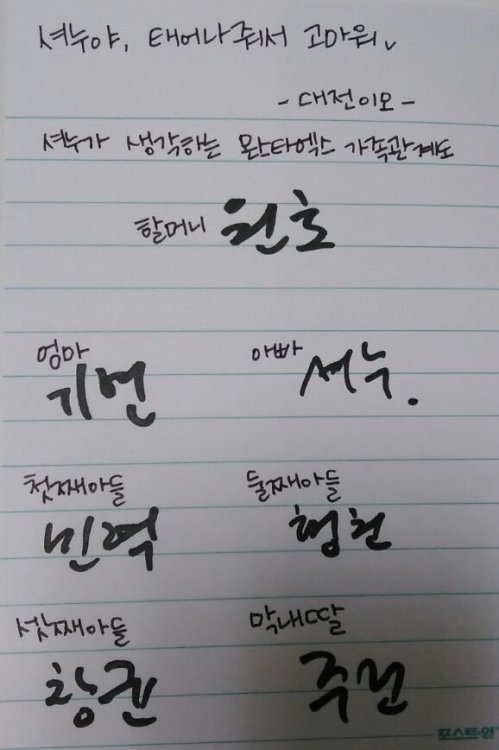 셔누야, 태어나줘서 고마워
- 대전이모 -
셔누가 생각하는 몬스타엑스 가족관계도
할머니 원호
엄마 기현
아빠 셔누.
첫째아들 민혁
둘째아들 형원
셋째아들 창균
막내딸 주헌
포스트-잇